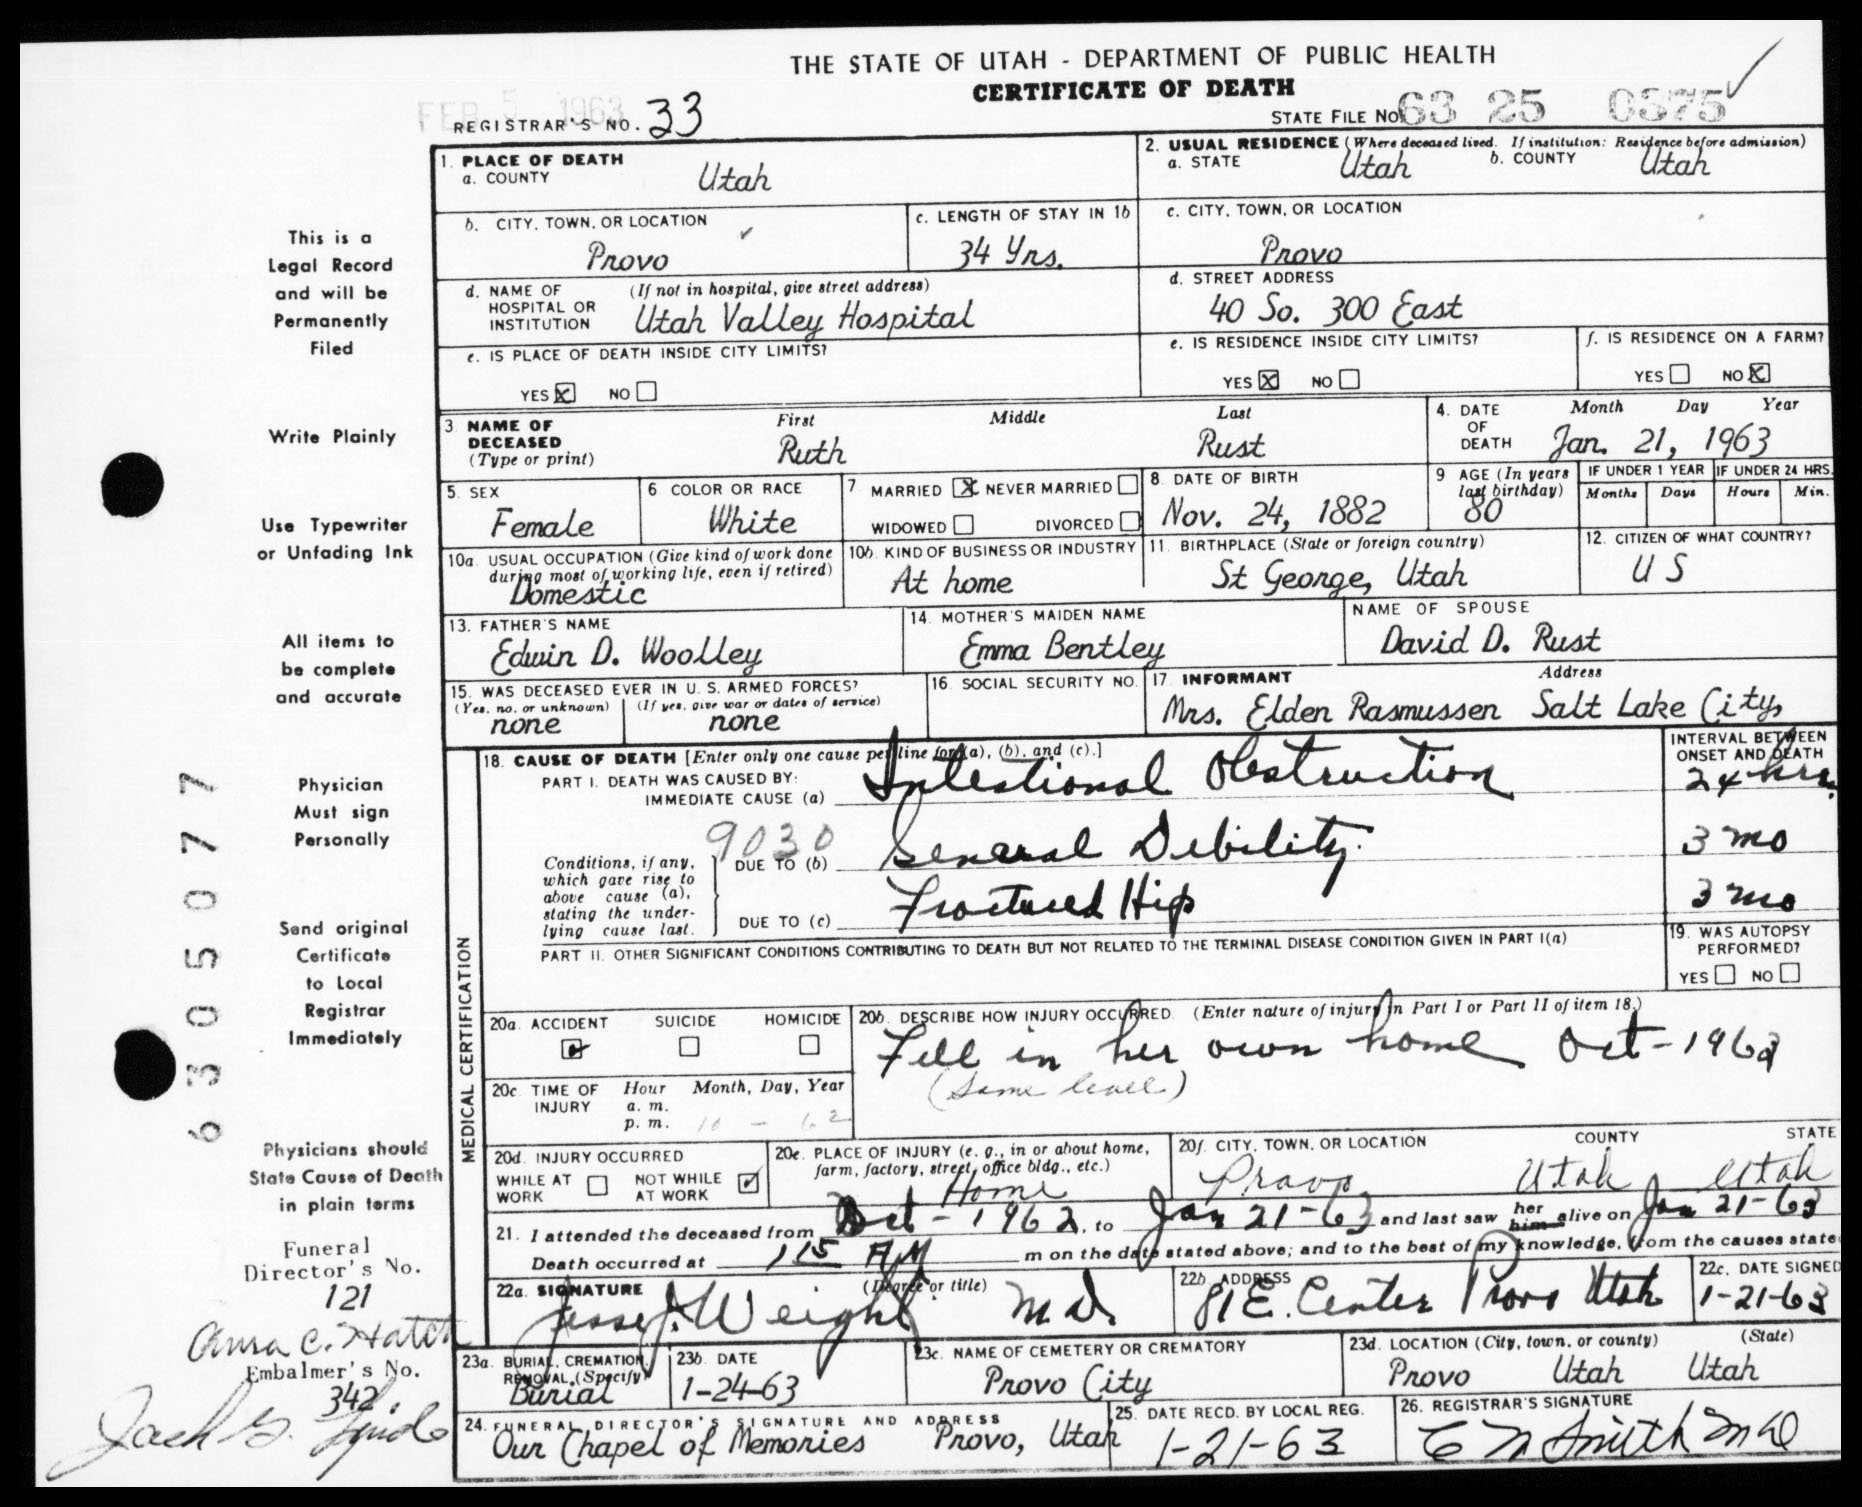 THE STATE OF UTAH - DEPARTMENT OF PUBLIC HEALTH
CERTIFICATE OF DEATH
FEB 5 1963
REGISTRAR'S NO. 33
STATE FILE NO. 63 25 0375
1. PLACE OF DEATH
a. COUNTY Utah
2. USUAL RESIDENCE (Where deceased lived. If institution: Residence before admission)
a. STATE Utah b. COUNTY Utah
b. CITY, TOWN, OR LOCATION Provo
c. LENGTH OF STAY IN 1b 34 Yrs.
c. CITY, TOWN, OR LOCATION Provo
d. NAME OF HOSPITAL OR INSTITUTION (If not in hospital, give street address) Utah Valley Hospital
d. STREET ADDRESS 40 So. 300 East
e. IS PLACE OF DEATH INSIDE CITY LIMITS?
YES X NO
e. IS RESIDENCE INSIDE CITY LIMITS?
YES X NO
f. IS RESIDENCE ON A FARM?
YES NO X
3 NAME OF DECEASED (Type or print)
First Middle Last
Ruth Rust
4. DATE OF DEATH Month Day Year
Jan. 21, 1963
5. SEX Female
6 COLOR OR RACE White
7 MARRIED X NEVER MARRIED
WIDOWED DIVORCED
8. DATE OF BIRTH Nov. 24, 1882
9 AGE (In years last birthday) 80
IF UNDER 1 YEAR Months Days
IF UNDER 24 HRS. Hours Min.
10a. USUAL OCCUPATION (Give kind of work done during most of working life, even if retired) Domestic
10b. KIND OF BUSINESS OR INDUSTRY At home
11. BIRTHPLACE (State or foreign country) St George, Utah
12. CITIZEN OF WHAT COUNTRY? U S
13. FATHER'S NAME Edwin D. Woolley
14. MOTHER'S MAIDEN NAME Emma Bentley
NAME OF SPOUSE David D. Rust
15. WAS DECEASED EVER IN U.S. ARMED FORCES?
(Yes, no, or unknown) none
(If yes, give war or dates of service) none
16. SOCIAL SECURITY NO.
17. INFORMANT Address
Mrs. Elden Rasmussen Salt Lake City,
18. CAUSE OF DEATH [Enter only one cause per line for (a), (b), and (c).]
INTERVAL BETWEEN ONSET AND DEATH
PART I. DEATH WAS CAUSED BY:
IMMEDIATE CAUSE (a) Intestional Obstruction 24 hrs.
9030
Conditions, if any, which gave rise to above cause (a), stating the underlying cause last.
DUE TO (b) General Debility. 3 mo
DUE TO (c) Fractured Hip 3 mo
PART II. OTHER SIGNIFICANT CONDITIONS CONTRIBUTING TO DEATH BUT NOT RELATED TO THE TERMINAL DISEASE CONDITION GIVEN IN PART I(a)
19. WAS AUTOPSY PERFORMED?
YES NO
MEDICAL CERTIFICATION
20a. ACCIDENT SUICIDE HOMICIDE
20b. DESCRIBE HOW INJURY OCCURRED. (Enter nature of injury in Part I or Part II of item 18.)
Fell in her own home Oct - 1962
(Same level)
20c. TIME OF INJURY Hour Month, Day, Year
a. m.
p. m. 10 - 62
20d. INJURY OCCURRED
WHILE AT WORK NOT WHILE AT WORK
20e. PLACE OF INJURY (e. g., in or about home, farm, factory, street, office bldg., etc.) Home
20f. CITY, TOWN, OR LOCATION COUNTY STATE
Provo Utah Utah
21. I attended the deceased from Oct - 1962, to Jan 21-63 and last saw her him alive on Jan 21-63
Death occurred at 1 15 AM m on the date stated above; and to the best of my knowledge, from the causes state
22a. SIGNATURE (Degree or title)
Jesse J. Weight M.D.
22b. ADDRESS 81 E. Center Provo Utah
22c. DATE SIGNED 1-21-63
23a. BURIAL, CREMATION, REMOVAL (Specify) Burial
23b. DATE 1-24-63
23c. NAME OF CEMETERY OR CREMATORY Provo City
23d. LOCATION (City, town, or county) (State)
Provo Utah Utah
24. FUNERAL DIRECTOR'S SIGNATURE AND ADDRESS
Our Chapel of Memories Provo, Utah
25. DATE RECD. BY LOCAL REG. 1-21-63
26. REGISTRAR'S SIGNATURE
C N Smith MD
This is a
Legal Record
and will be
Permanently
Filed
Write Plainly
Use Typewriter
or Unfading Ink
All items to
be complete
and accurate
Physician
Must sign
Personally
Send original
Certificate
to Local
Registrar
Immediately
Physicians should
State Cause of Death
in plain terms
Funeral
Director's No.
121
Embalmer's No.
342
6305077